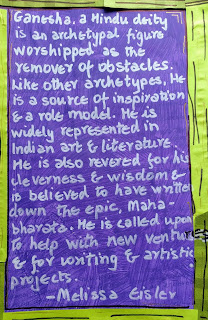 Ganesha, a Hindu deity
is an archetypal figure
worshipped as the
remover of obstacles.
Like other archetypes, He
is a source of inspiration
& a role model. He is
widely represented in
Indian art & literature.
He is also revered for his
cleverness & wisdom &
is believed to have written
down the epic, Maha-
bharata. He is called upon
to help with new ventures
& for writing & artistic
projects.
-Melissa Eisler